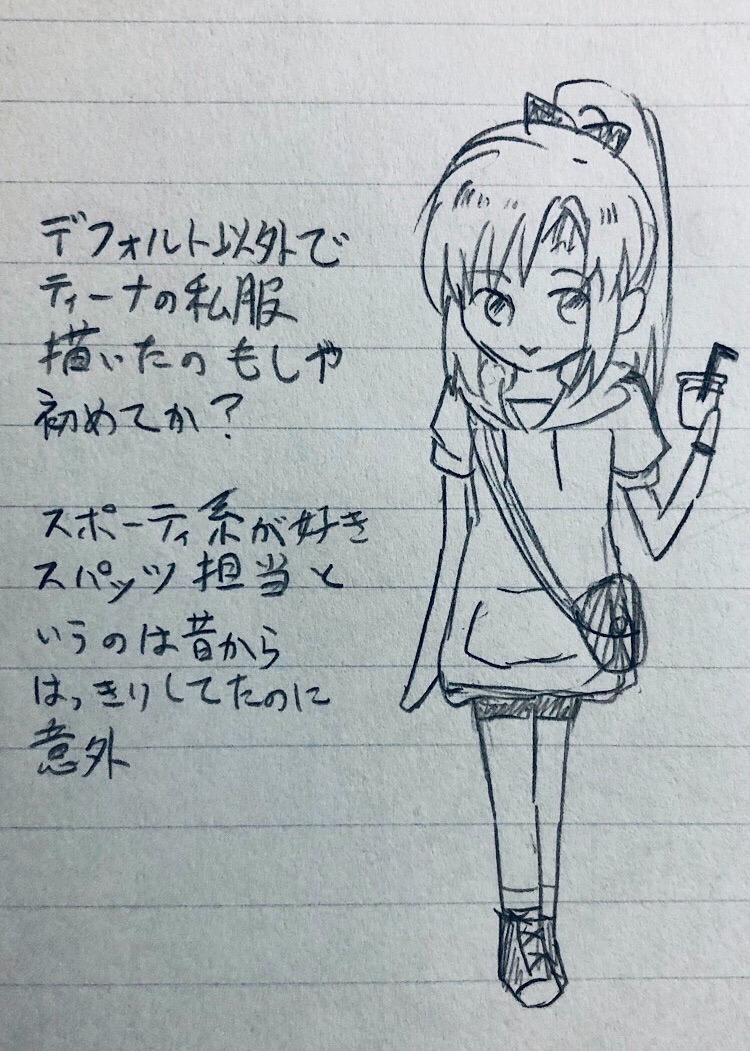 デフォルト以外で
ティーナの私服
描いたのもしや
初めてか?
スポーティ系が好き
スパッツ担当と
いうのは昔から
はっきりしてたのに
意外